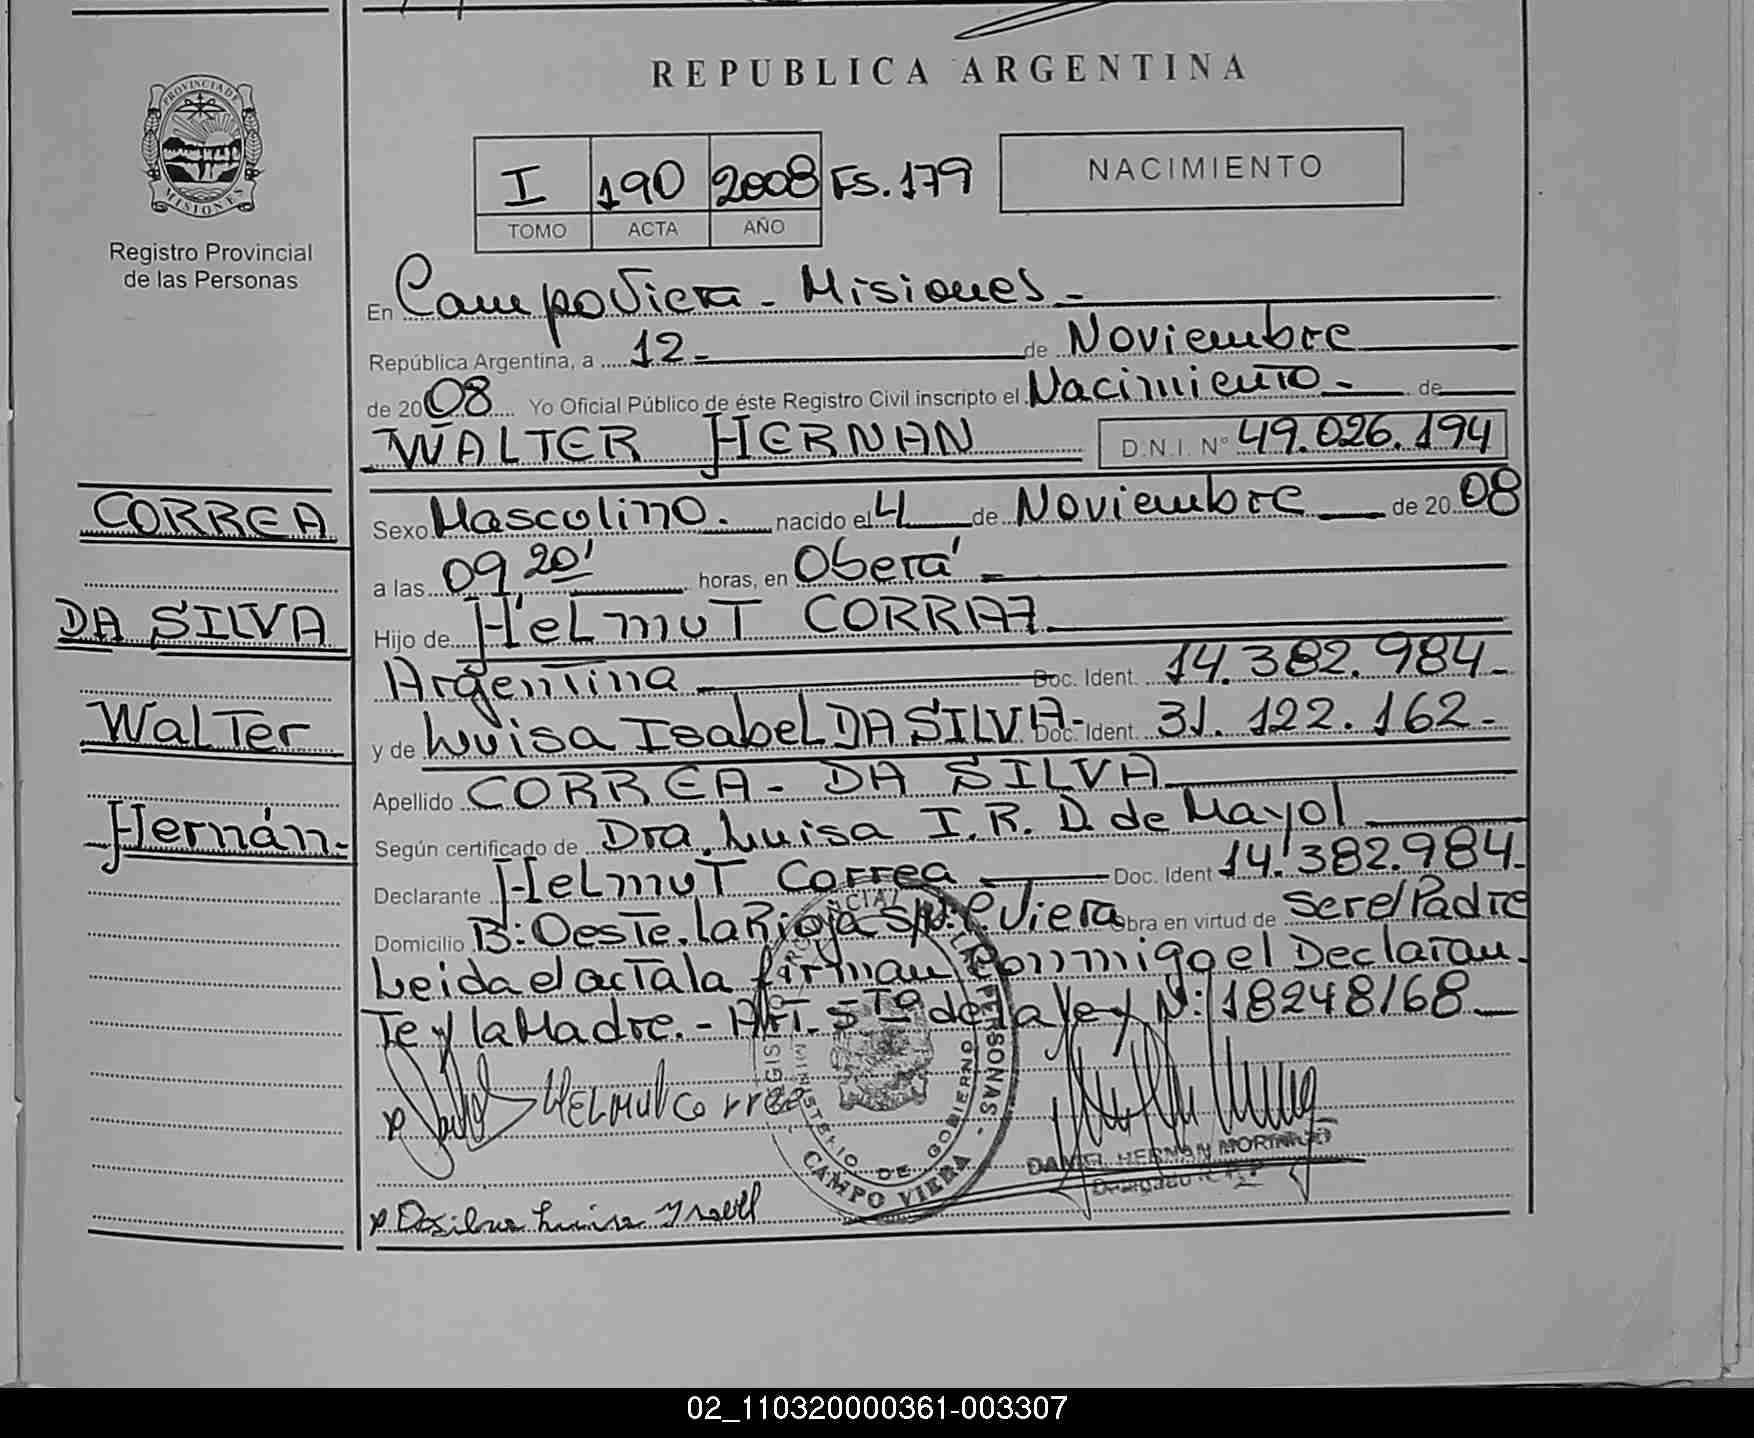 REPUBLICA ARGENTINA
PROVINCIA DE MISIONES
Registro Provincial
de las Personas
I 190 2008 FS. 179
TOMO ACTA AÑO
NACIMIENTO
En Campo Viera - Misiones -
República Argentina, a 12 - de Noviembre
de 2008 Yo Oficial Público de éste Registro Civil inscripto el Nacimiento - de
WALTER HERNAN D.N.I. Nº 49.026.194
CORREA
DA SILVA
Walter
Hernán.-
Sexo Masculino. nacido el 4 de Noviembre de 2008
a las 09 20' horas, en Oberá -
Hijo de Helmut CORREA
Argentina Doc. Ident. 14.382.984-
y de Luisa Isabel DA SILVA- Doc. Ident. 31.122.162-
Apellido CORREA - DA SILVA
Según certificado de Dra. Luisa I. R. D. de Mayol
Declarante Helmut Correa Doc. Ident 14.382.984-
Domicilio B: Oeste. la Rioja s/n: C. Viera Obra en virtud de Ser el Padre
Leida el acta la firman conmigo el Declaran-
te y la Madre. - Art. 5to de la Ley N: 18248/68
HELMUT Correa
CAMPO VIERA
MINISTERIO DE GOBIERNO
DANIEL HERNAN
Delegado
Dasilva Luisa Ysabel
02_110320000361-003307